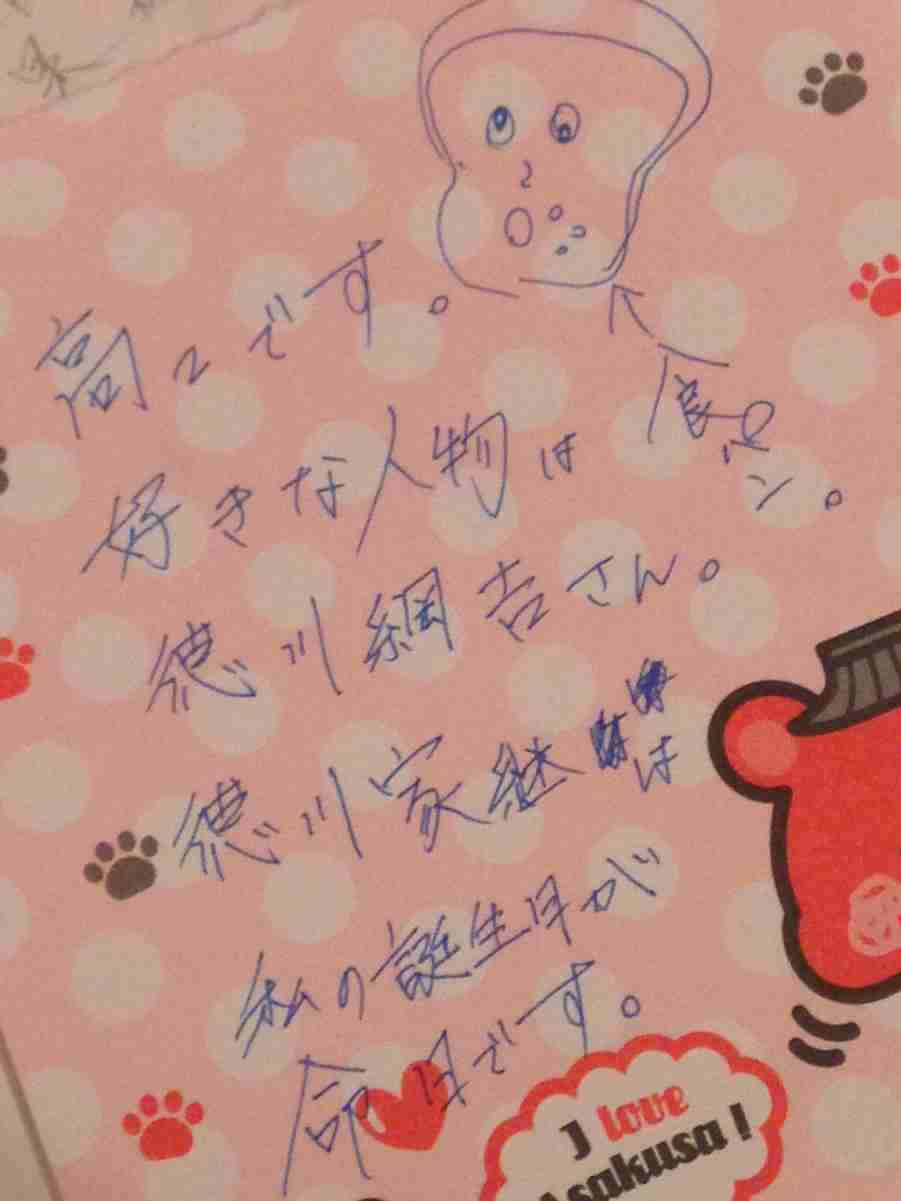 高2です。
食パン。
好きな人物は
徳川綱吉さん。
徳川家継
は
私の誕生日が
命日です。
I love
Asakusa!